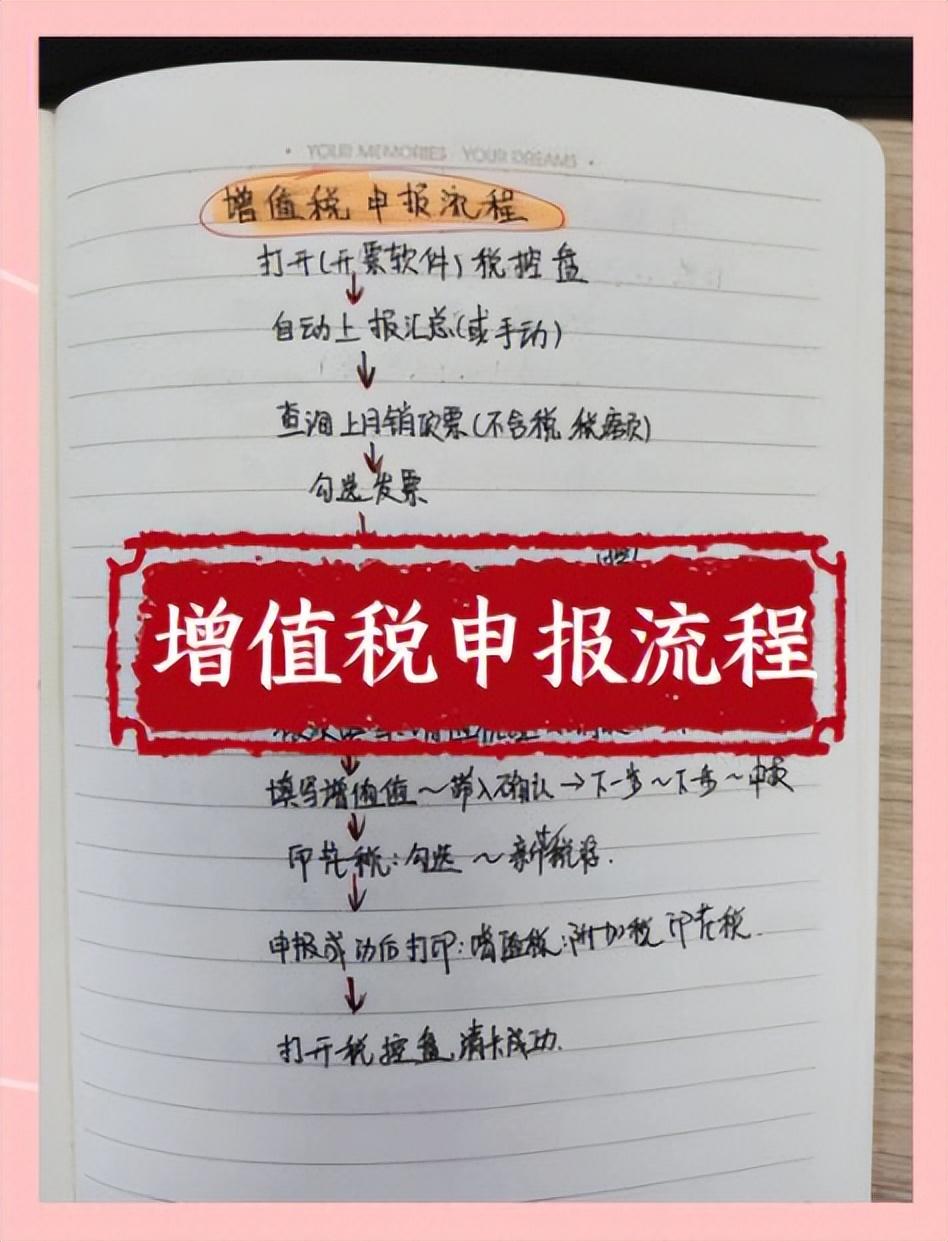 YOUR MEMORIES YOUR DREAMS
增值税申报流程
打开(开票软件)税控盘
自动上报汇总(或手动)
查询上月销项票(不含税 税额)
勾选发票
增值税申报流程
填写增值值~带入确认→下一步~下一步~申
印花税:勾选~
申报成功后打印:增值税:附加税 印花税.
打开税控盘清卡成功.